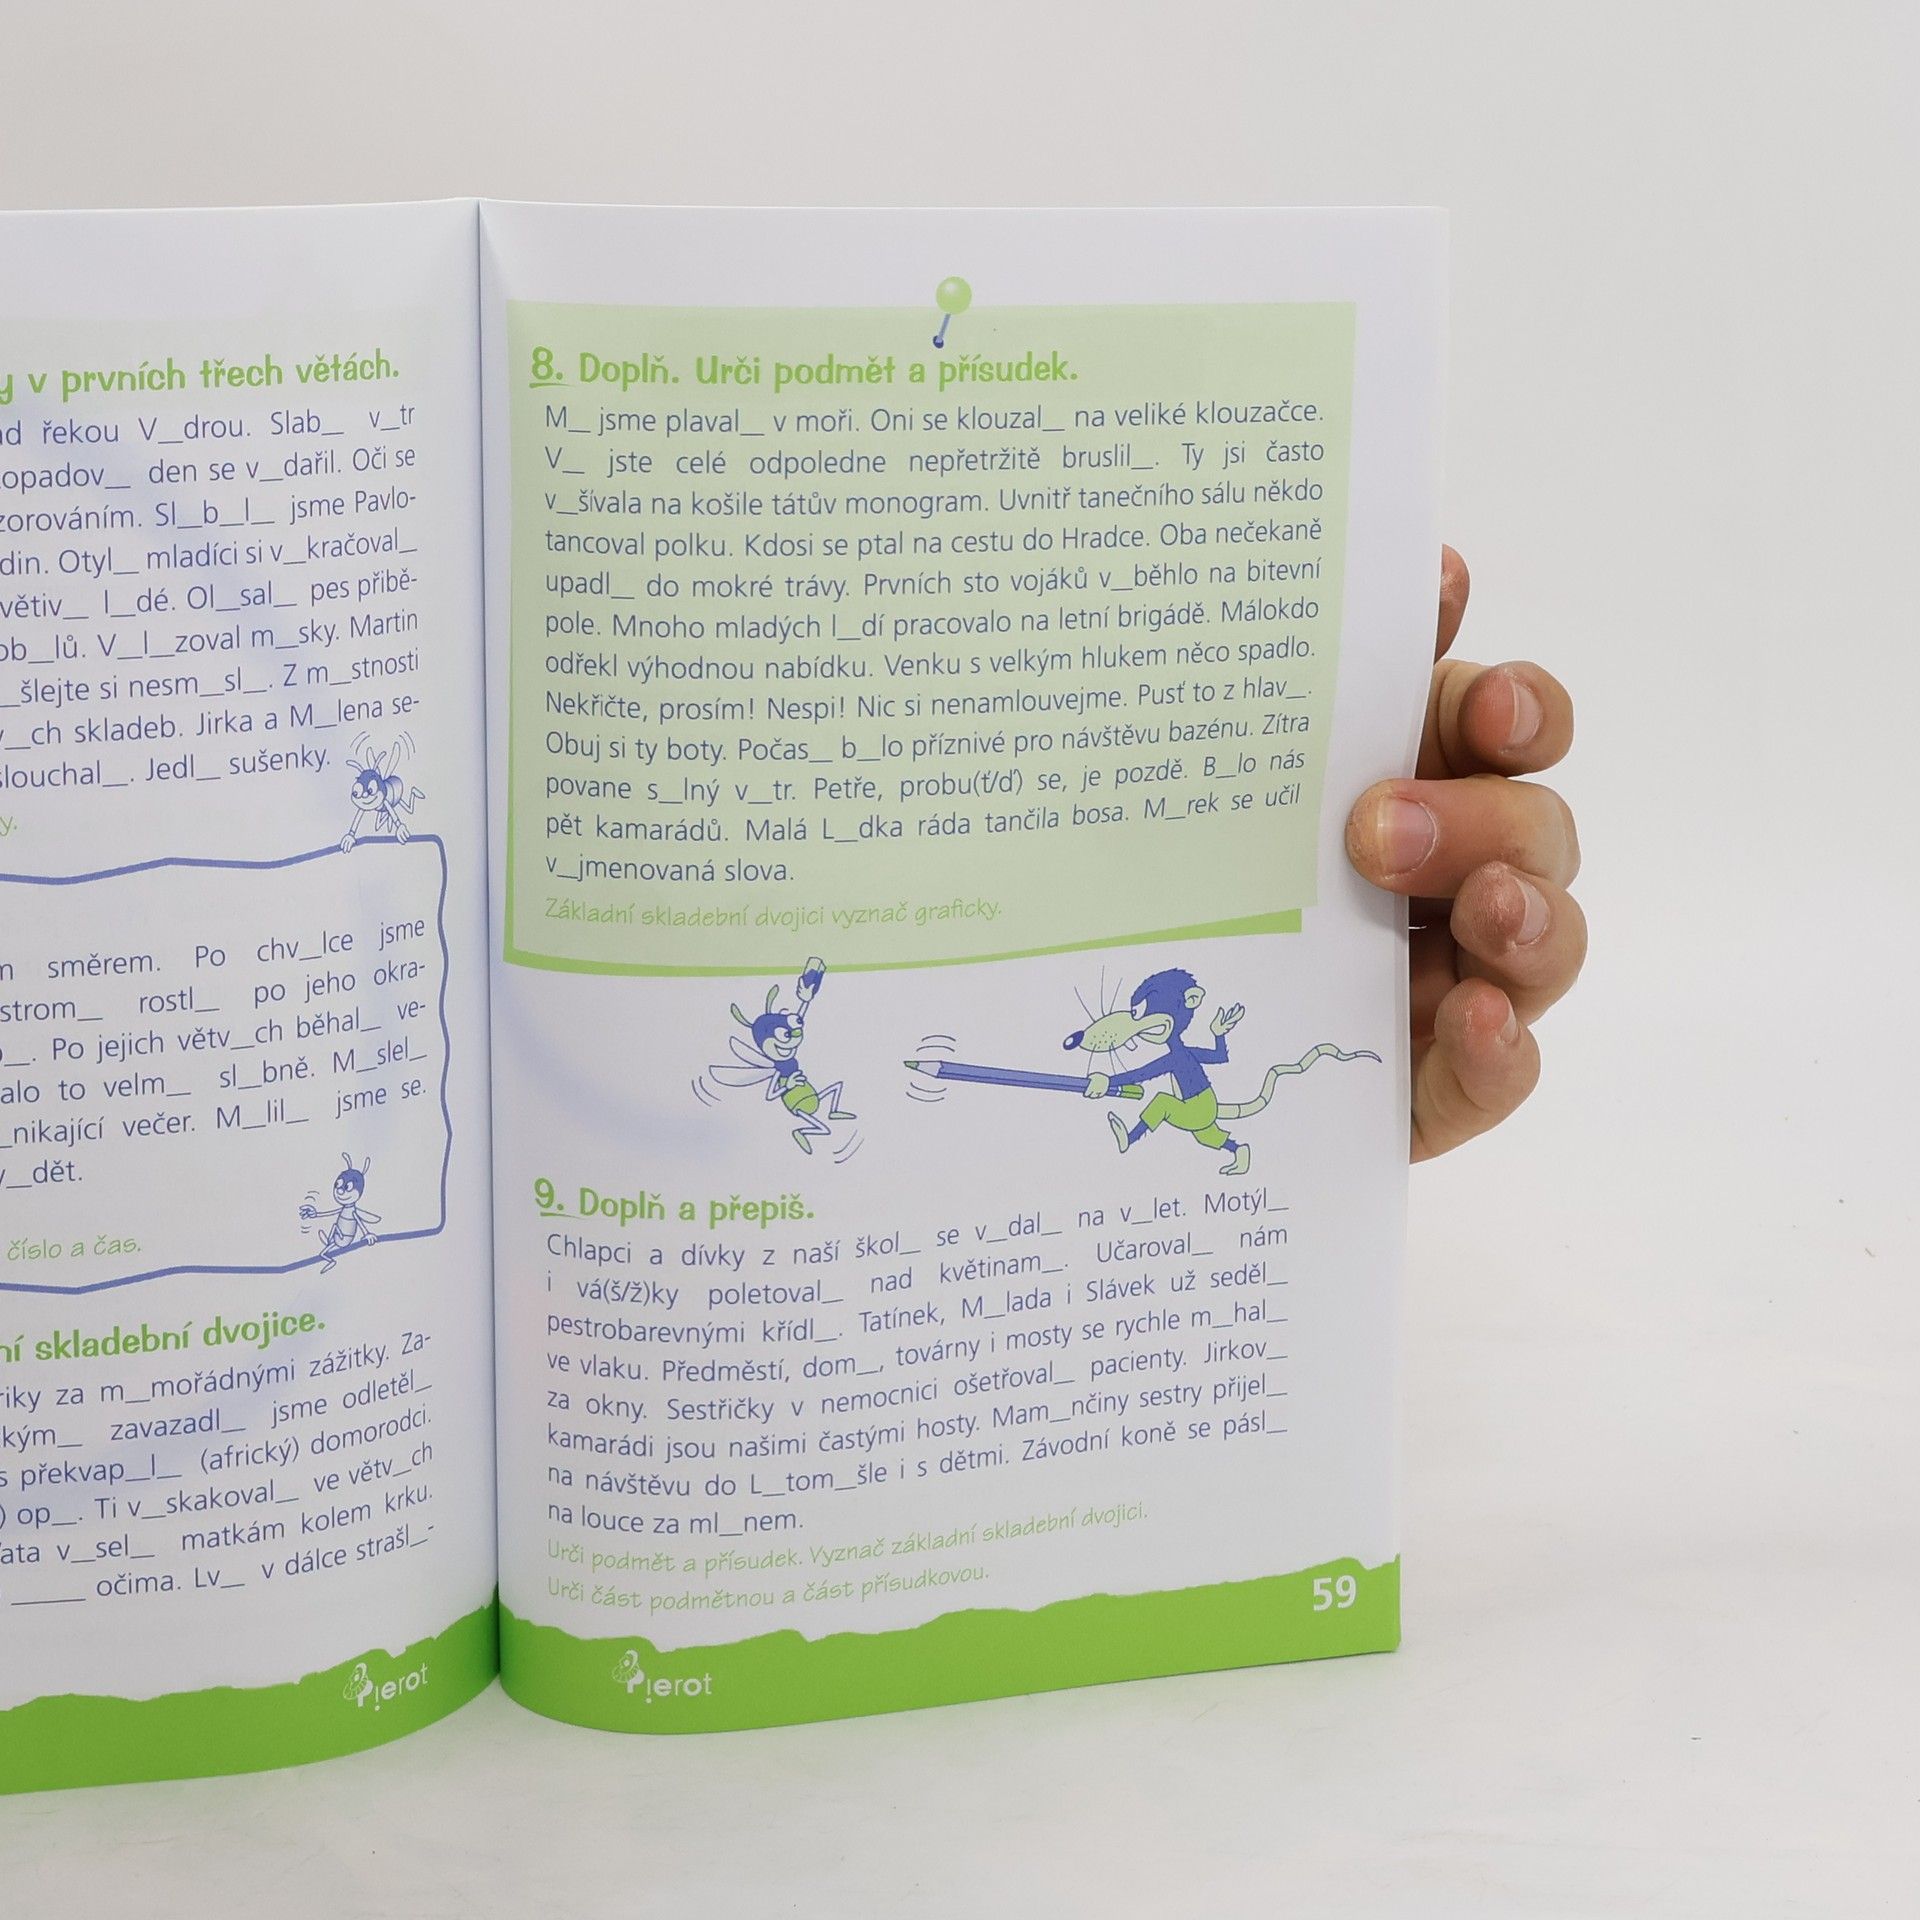 y v prvních třech větách.
ad řekou V__drou. Slab__ v__tr
opadov__ den se v__dařil. Oči se
zorováním. Sl__b__l__ jsme Pavlo-
din. Otyl__ mladíci si v__kračoval__
větiv__ l__dé. Ol__sal__ pes přibě-
ob__lů. V__l__zoval m__sky. Martin
__šlejte si nesm__sl__. Z m__stnosti
__ch skladeb. Jirka a M__lena se-
slouchal__. Jedl__ sušenky.
y.
m směrem. Po chv__lce jsme
strom__ rostl__ po jeho okra-
__. Po jejich větv__ch běhal__ ve-
alo to velm__ sl__bně. M__slel__
__nikající večer. M__lil__ jsme se.
__dět.
číslo a čas.
ní skladební dvojice.
riky za m__mořádnými zážitky. Za-
kým__ zavazadl__ jsme odletěl__
s překvap__l__ (africký) domorodci.
) op__. Ti v__skakoval__ ve větv__ch
ata v__sel__ matkám kolem krku.
_____ očima. Lv__ v dálce strašl__-
Pierot
8. Doplň. Urči podmět a přísudek.
M__ jsme plaval__ v moři. Oni se klouzal__ na veliké klouzačce.
V__ jste celé odpoledne nepřetržitě bruslil__. Ty jsi často
v__šívala na košile tátův monogram. Uvnitř tanečního sálu někdo
tancoval polku. Kdosi se ptal na cestu do Hradce. Oba nečekaně
upadl__ do mokré trávy. Prvních sto vojáků v__běhlo na bitevní
pole. Mnoho mladých l__dí pracovalo na letní brigádě. Málokdo
odřekl výhodnou nabídku. Venku s velkým hlukem něco spadlo.
Nekřičte, prosím! Nespi! Nic si nenamlouvejme. Pusť to z hlav__.
Obuj si ty boty. Počas__ b__lo příznivé pro návštěvu bazénu. Zítra
povane s__lný v__tr. Petře, probu(ť/ď) se, je pozdě. B__lo nás
pět kamarádů. Malá L__dka ráda tančila bosa. M__rek se učil
v__jmenovaná slova.
Základní skladební dvojici vyznač graficky.
9. Doplň a přepiš.
Chlapci a dívky z naší škol__ se v__dal__ na v__let. Motýl__
i vá(š/ž)ky poletoval__ nad květinam__. Učaroval__ nám
pestrobarevnými křídl__. Tatínek, M__lada i Slávek už seděl__
ve vlaku. Předměstí, dom__, továrny i mosty se rychle m__hal__
za okny. Sestřičky v nemocnici ošetřoval__ pacienty. Jirkov__
kamarádi jsou našimi častými hosty. Mam__nčiny sestry přijel__
na návštěvu do L__tom__šle i s dětmi. Závodní koně se pásl__
na louce za ml__nem.
Urči podmět a přísudek. Vyznač základní skladební dvojici.
Urči část podmětnou a část přísudkovou.
59
Pierot